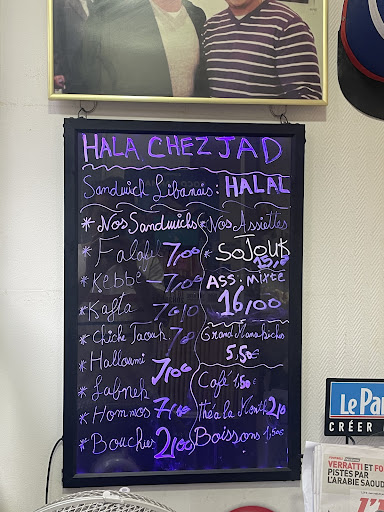 HALA CHEZ JAD
Sandwich Libanais: HALAL
* Nos Sandwichs
* Falafel 7,00
* Kebbé 7,00
* Kafta 7,00
* Chiche Taouk 7,00
* Halloumi 7,00
* Labneh
* Hommos 7,00
* Bouchée 2,00
* Nos Assiettes
* SOJOUK
ASS. Mixte
16,00
Grand Manakiches
5.50€
Café 1,50€
Thé à la Menth 2,00
Boissons 1,50€
Le Pa
CRÉER
VERRATTI ET
PISTÉS PAR
L'ARABIE SAOU